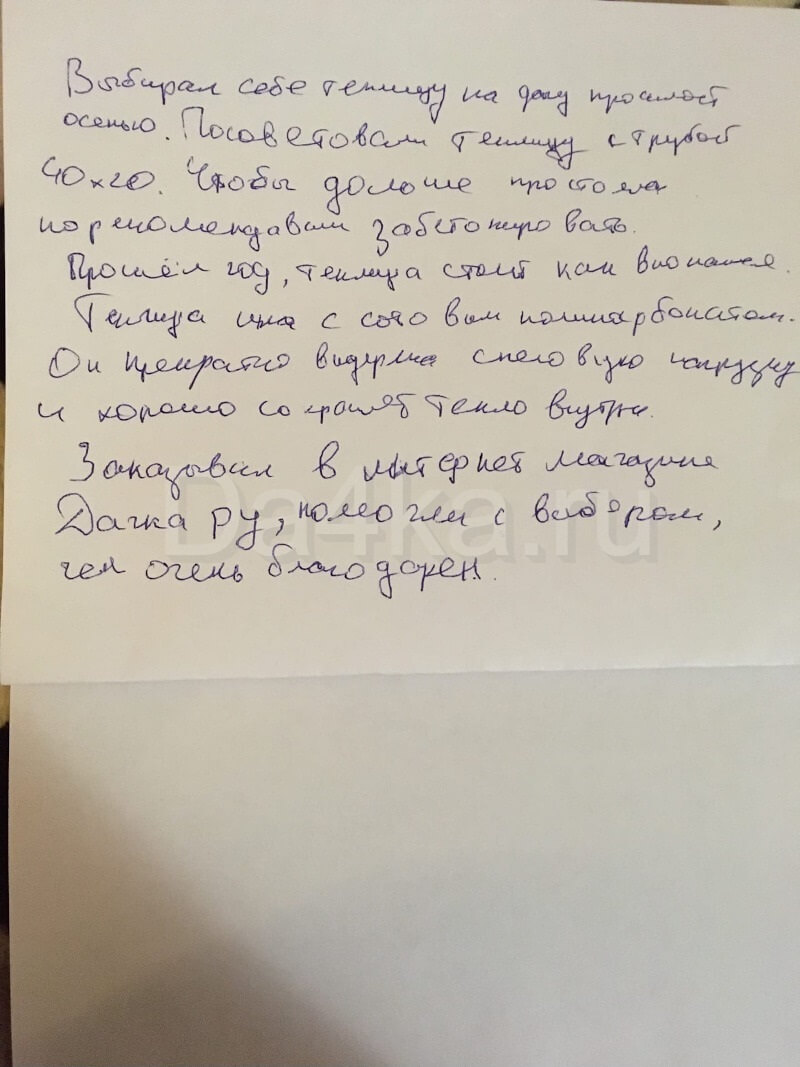 Выбирал себе теплицу на дачу прошлой
осенью. Посоветовали теплицу с трубой
40х20. Чтобы дольше простояла
порекомендавали забетонировать.
Прошёл год, теплица стоит как вкопаная.
Теплица шла с сотовым поликарбонатом.
Он прекратно видержал снеговую нагрузку
и хорошо сохраняет тепло внутри.
Заказывал в интернет магазине
Дачка ру, помогли с выбором,
чем очень благодарен.
Da4ka.ru